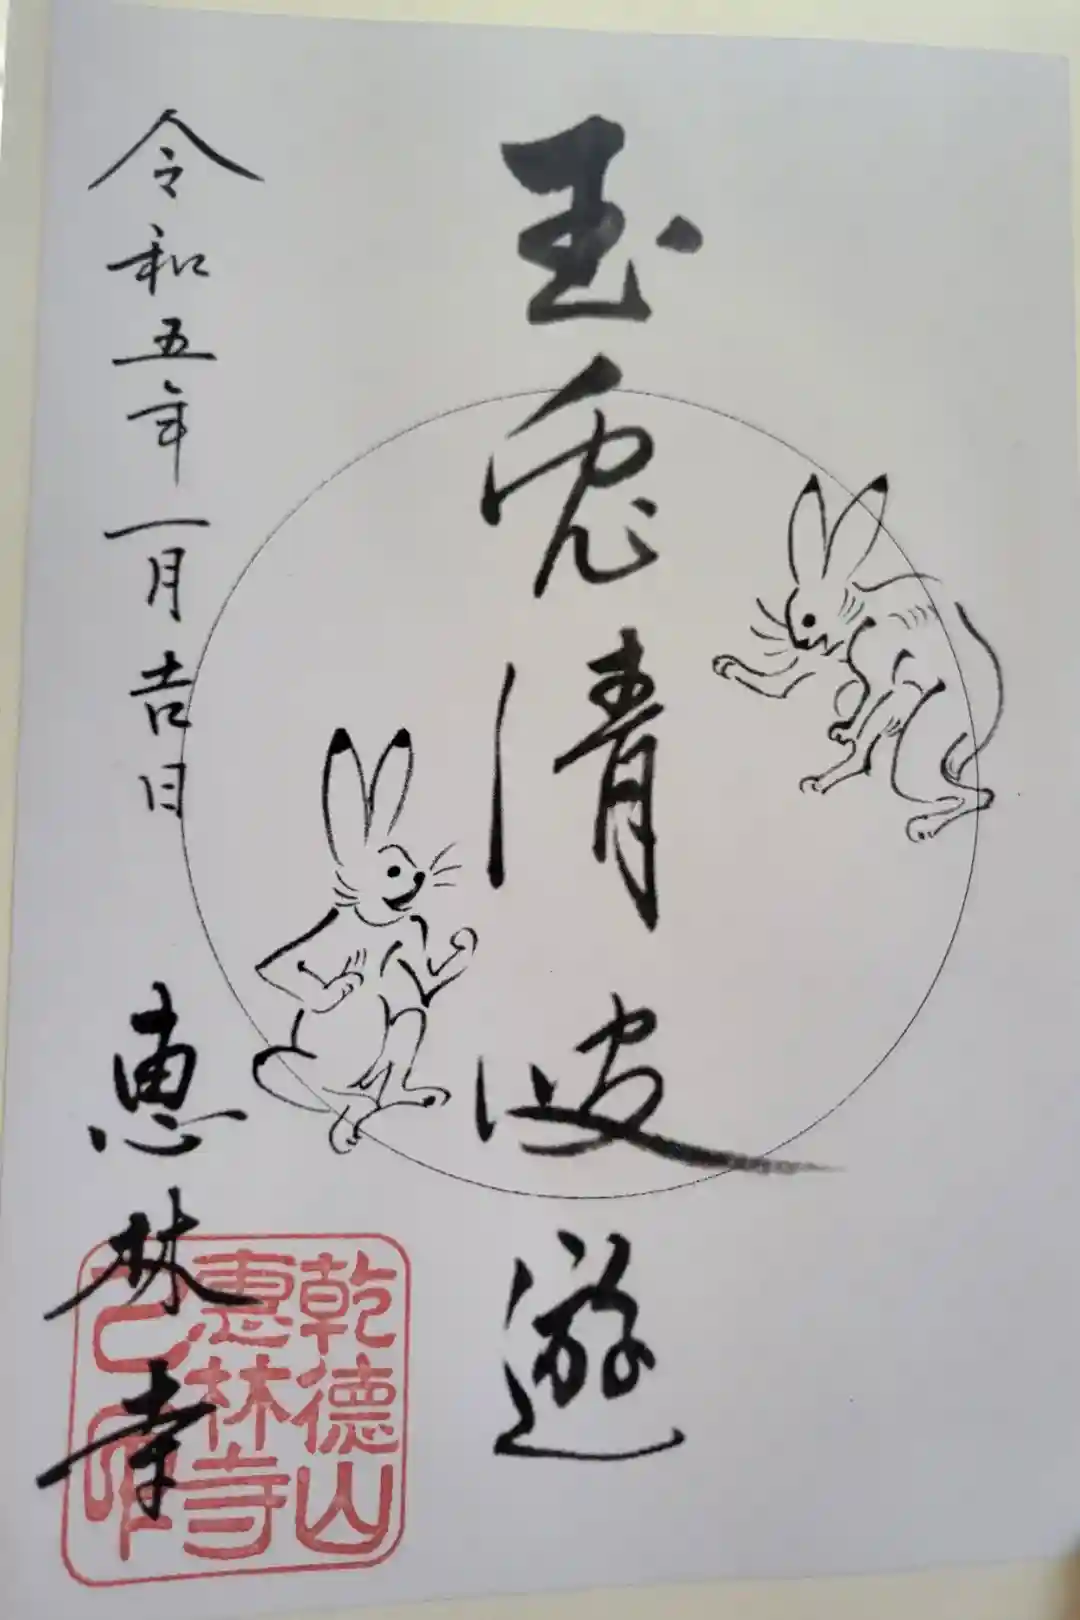 玉兎清波遊
令和五年一月吉日
恵林寺
乾德山
恵林寺
之印